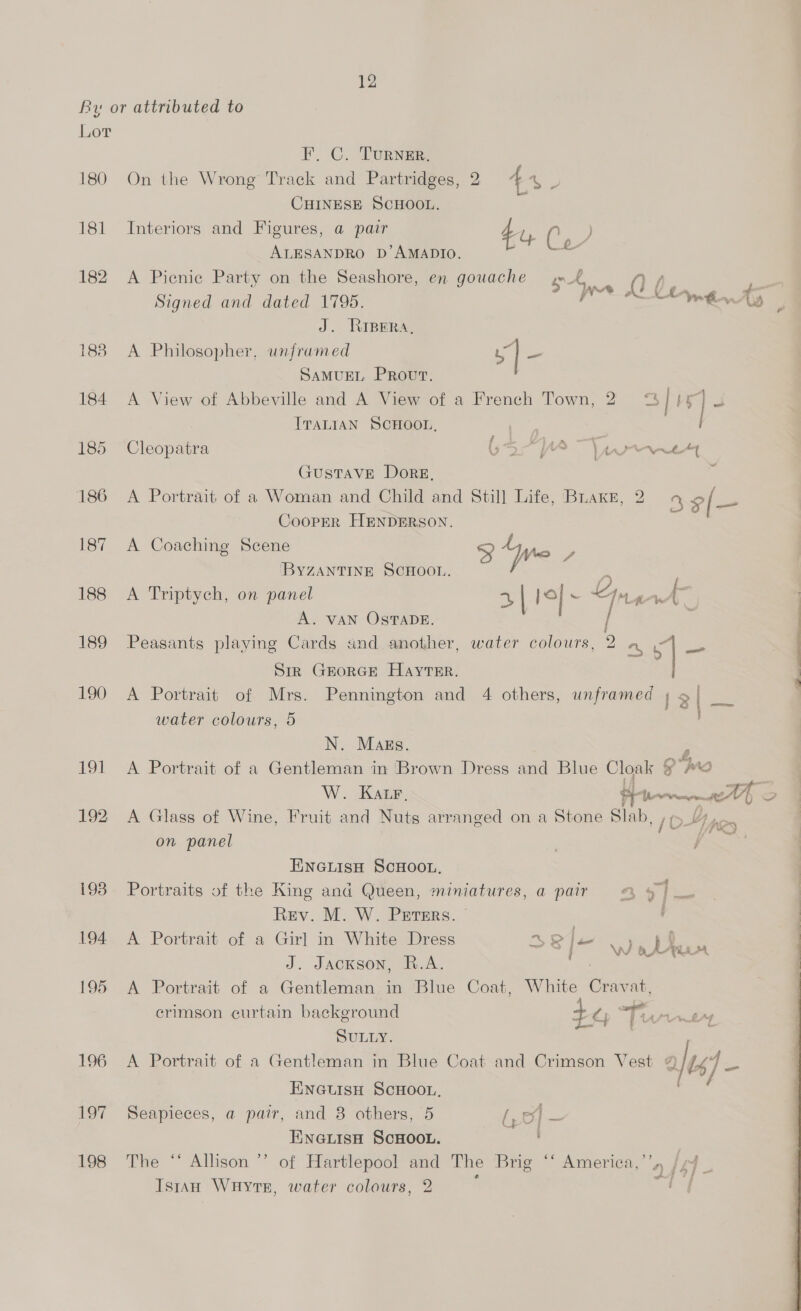 12
By or attributed to
Lot
F. C. TURNER.
180 On the Wrong Track and Partridges, 2
CHINESE SCHOOL.
181 Interiors and Figures, a pair
ALESANDRO D'AMADIO.
182 A Picnic Party on the Seashore, en gouache
Signed and dated 1795.
J. RIBERA.
183 A Philosopher, unframed 5/-
SAMUEL PROUT.
184 A View of Abbeville and A View of a French Town, 2 3/15/-
ITALIAN SCHOOL.
185 Cleopatra
GUSTAVE DORE,
186 A Portrait of a Woman and Child and Still Life, BLAKE, 2 38/-
COOPER HENDERSON.
187 A Coaching Scene
BYZANTINE SCHOOL.
188 A Triptych, on panel 3/10/- Grant
A. VAN OSTADE.
189 Peasants playing Cards and another, water colours, 2
SIR GEORGE HAYTER.
190 A Portrait of Mrs. Pennington and 4 others, unframed
water colours, 5
N. MAES.
191 A Portrait of a Gentleman in Brown Dress and Blue Cloak
W. KALF,
192 A Glass of Wine, Fruit and Nuts arranged on a Stone Slab,
on panel
ENGLISH SCHOOL,
193 Portraits of the King and Queen, miniatures, a pair
REV. M. W. PETERS.
194 A Portrait of a Girl in White Dress 38/-
J. JACKSON, R.A.
195 A Portrait of a Gentleman in Blue Coat, White Cravat,
crimson curtain background
SULLY.
196 A Portrait of a Gentleman in Blue Coat and Crimson Vest
ENGLISH SCHOOL,
197 Seapieces, a pair, and 3 others, 5
ENGLISH SCHOOL.
198 The “ Allison ” of Hartlepool and The Brig “ America,”
ISIAH WHYTE, water colours, 2